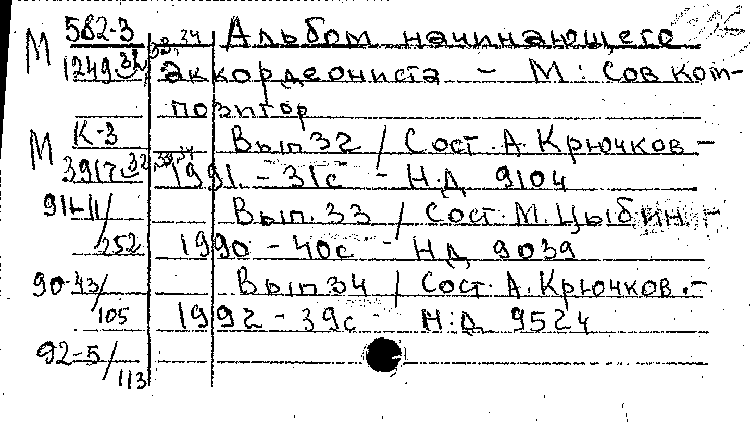 М 582-3 Альбом начинающего
1249 32, 33, 34 аккордеониста - М: Сов ком-
позитор
М К-3 Вып 32 / Сост. А. Крючков -
3917 32, 33, 34 1991. - 31с - Н.Д 9104
91-11/ Вып. 33 / Сост. М. Цыбин -
252 1990 - 40с - НД 9039
90-43/ Вып 34 / Сост. А. Крючков. -
105 1992 - 39с - Н.Д. 9524
92-5/
113